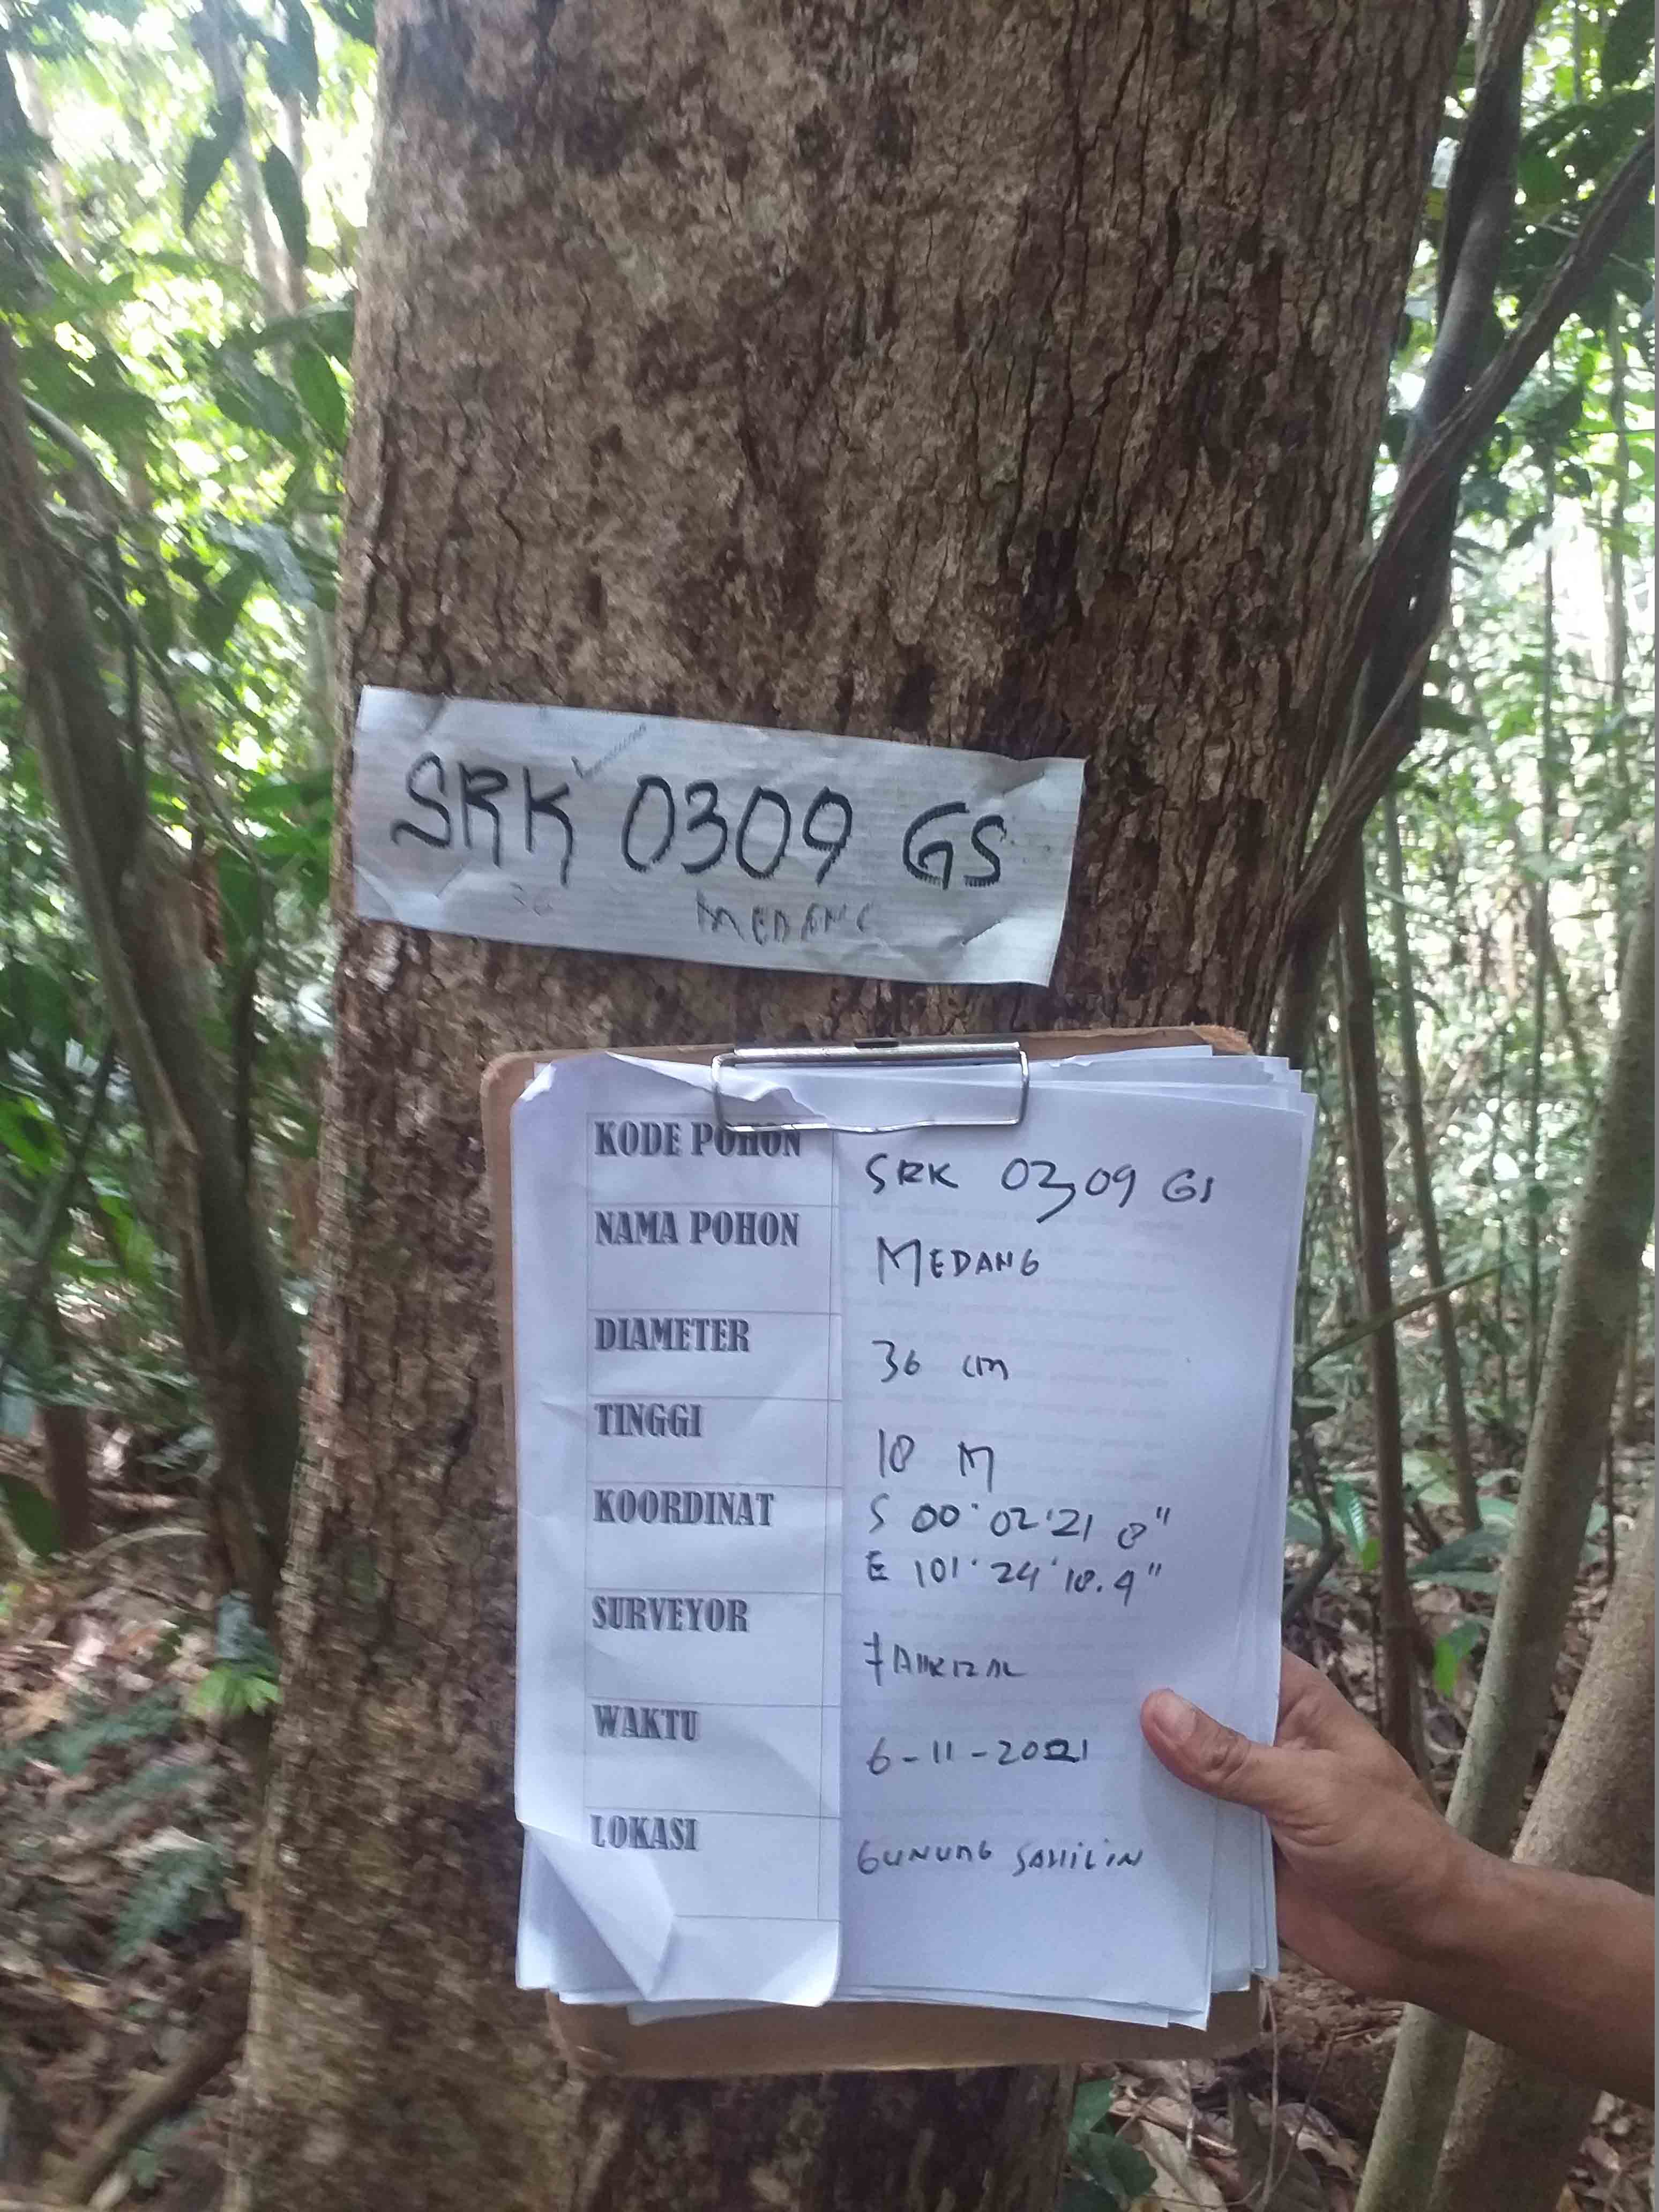 SRK 0309 GS
MEDANG
KODE POHON SRK 0309 GS
NAMA POHON MEDANG
DIAMETER 36 cm
TINGGI 18 M
KOORDINAT S 00° 02' 21 8"
E 101° 24' 18.4"
SURVEYOR
WAKTU 6-11-2021
LOKASI GUNUNG SAHILIN